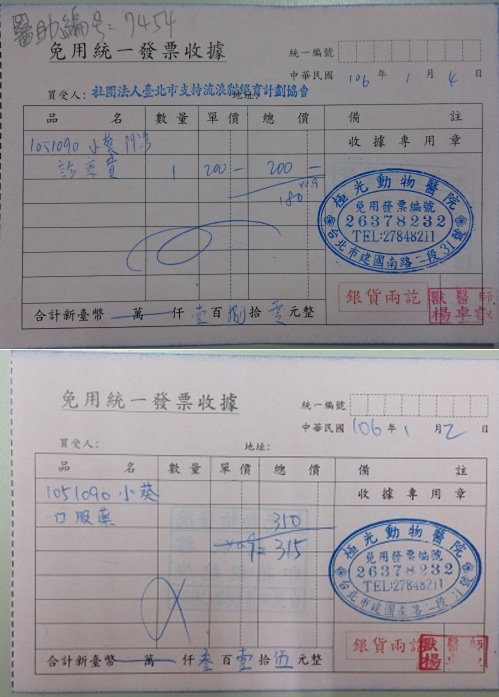 醫助編号:7454
免用統一發票收據
統一編號
中華民國 106 年 1 月 4 日
買受人: 社團法人臺北市支持流浪貓絕育計劃協會
地址:
品名 數量 單價 總價 備註
1051090 小葵 收據專用章
診察費 1 200- 200-
×0.9
180
極光動物醫院
免用發票編號
26378232
TEL:27848211
台北市建國南路二段31號
銀貨兩訖
獸醫師
合計新臺幣 萬 仟 壹 百 捌 拾 零 元整
免用統一發票收據
統一編號
中華民國 106 年 1 月 2 日
買受人:
地址:
品名 數量 單價 總價 備註
1051090 小葵 收據專用章
口服藥 350
×0.9= 315
極光動物醫院
免用發票編號
26378232
TEL:27848211
台北市建國南路二段31號
銀貨兩訖
獸醫師
合計新臺幣 萬 仟 叁 百 壹 拾 伍 元整